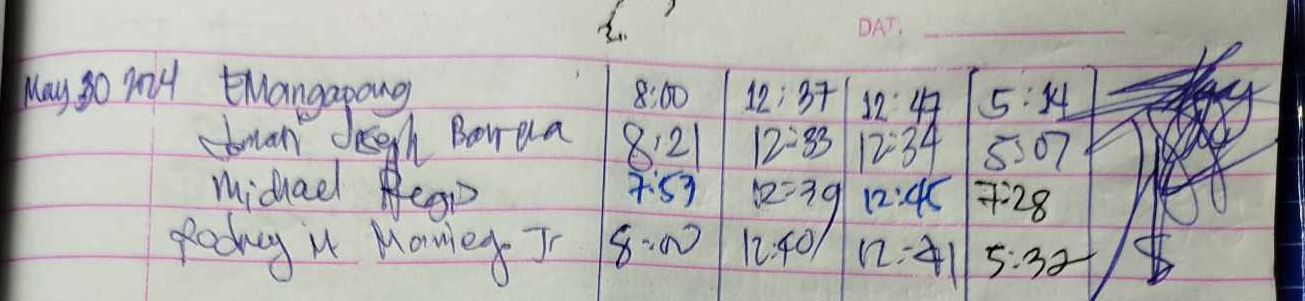 DAT.
May 30 2024 EMangapang 8:00 12:37 12:47 5:14
Joseph 8:21 12:33 12:34 5:07
Michael 7:57 12:39 12:45 7:28
Rodney M Jr 8:00 12:40 12:41 5:32